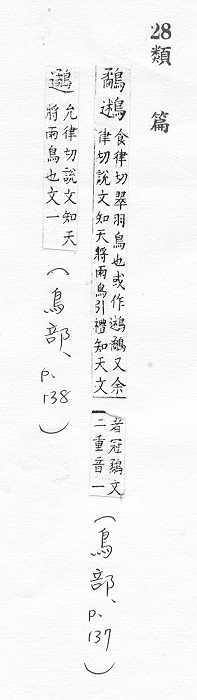 28 類 篇
鷸
食律切翠羽鳥也或作鷸又余
律切說文知天將雨鳥引禮知天文
者冠鷸文
二重音一
(鳥部、p.137)
允律切說文知天
將雨鳥也文一
(鳥部、p.138)